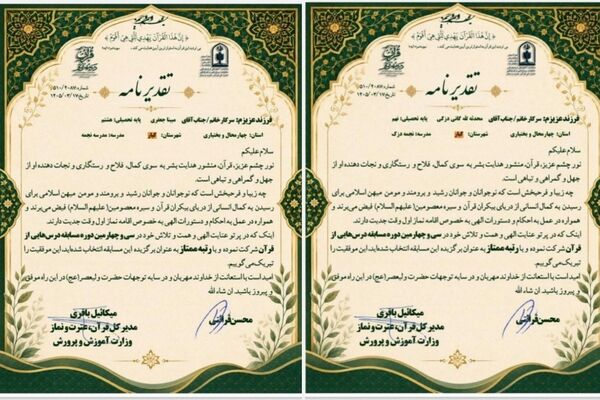 ﴿ إِنَّ هَذَا الْقُرْآنَ يَهْدِي لِلَّتِي هِيَ أَقْوَمُ ﴾
تقدیرنامه
شماره: ۵۱۰/۲۰۸۷
تاریخ: ۱۴۰۵/۰۳/۱۷
فرزند عزیزم: سرکار خانم/ جناب آقای مبینا جعفری پایه تحصیلی: هشتم
استان: چهارمحال و بختیاری شهرستان: کیار مدرسه: مدرسه نجمه
سلام علیکم
نور چشم عزیز، قرآن، منشور هدایت بشر به سوی کمال، فلاح و رستگاری و نجات دهنده او از
جهل و گمراهی و تباهی است.
چه زیبا و فرحبخش است که نوجوانان و جوانان رشید و برومند و مومن میهن اسلامی برای
رسیدن به کمال انسانی از دریای بیکران قرآن و سیره معصومین( علیهم السلام) فیض می‌برند و
همواره در عمل به احکام و دستورات الهی به خصوص اقامه نماز اول وقت جدیت دارند.
اینک که در پرتو عنایت الهی و همت و تلاش خود در سی و چهارمین دوره مسابقه درس‌هایی از
قرآن شرکت نموده و با رتبه ممتاز به عنوان برگزیده این مسابقه انتخاب شده‌اید، این موفقیت را
تبریک می‌گوییم.
امید است با استعانت از خداوند مهربان و در سایه توجهات حضرت ولیعصر(عج) در این راه موفق
و پیروز باشید. ان شاء الله
محسن قرائتی
میکائیل باقری
مدیر کل قرآن، عترت و نماز
وزارت آموزش و پرورش
﴿ إِنَّ هَذَا الْقُرْآنَ يَهْدِي لِلَّتِي هِيَ أَقْوَمُ ﴾
تقدیرنامه
شماره: ۵۱۰/۲۰۸۷
تاریخ: ۱۴۰۵/۰۳/۱۷
فرزند عزیزم: سرکار خانم/ جناب آقای محدثه اله کانی دزکی پایه تحصیلی: نهم
استان: چهارمحال و بختیاری شهرستان: کیار مدرسه: نجمه دزک
سلام علیکم
نور چشم عزیز، قرآن، منشور هدایت بشر به سوی کمال، فلاح و رستگاری و نجات دهنده او از
جهل و گمراهی و تباهی است.
چه زیبا و فرحبخش است که نوجوانان و جوانان رشید و برومند و مومن میهن اسلامی برای
رسیدن به کمال انسانی از دریای بیکران قرآن و سیره معصومین( علیهم السلام) فیض می‌برند و
همواره در عمل به احکام و دستورات الهی به خصوص اقامه نماز اول وقت جدیت دارند.
اینک که در پرتو عنایت الهی و همت و تلاش خود در سی و چهارمین دوره مسابقه درس‌هایی از
قرآن شرکت نموده و با رتبه ممتاز به عنوان برگزیده این مسابقه انتخاب شده‌اید، این موفقیت را
تبریک می‌گوییم.
امید است با استعانت از خداوند مهربان و در سایه توجهات حضرت ولیعصر(عج) در این راه موفق
و پیروز باشید. ان شاء الله
محسن قرائتی
میکائیل باقری
مدیر کل قرآن، عترت و نماز
وزارت آموزش و پرورش